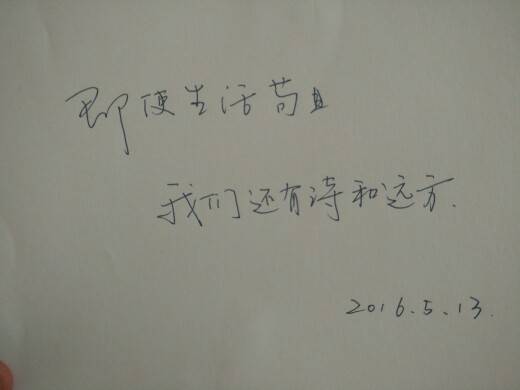 即使生活苟且
我们还有诗和远方.
2016.5.13.